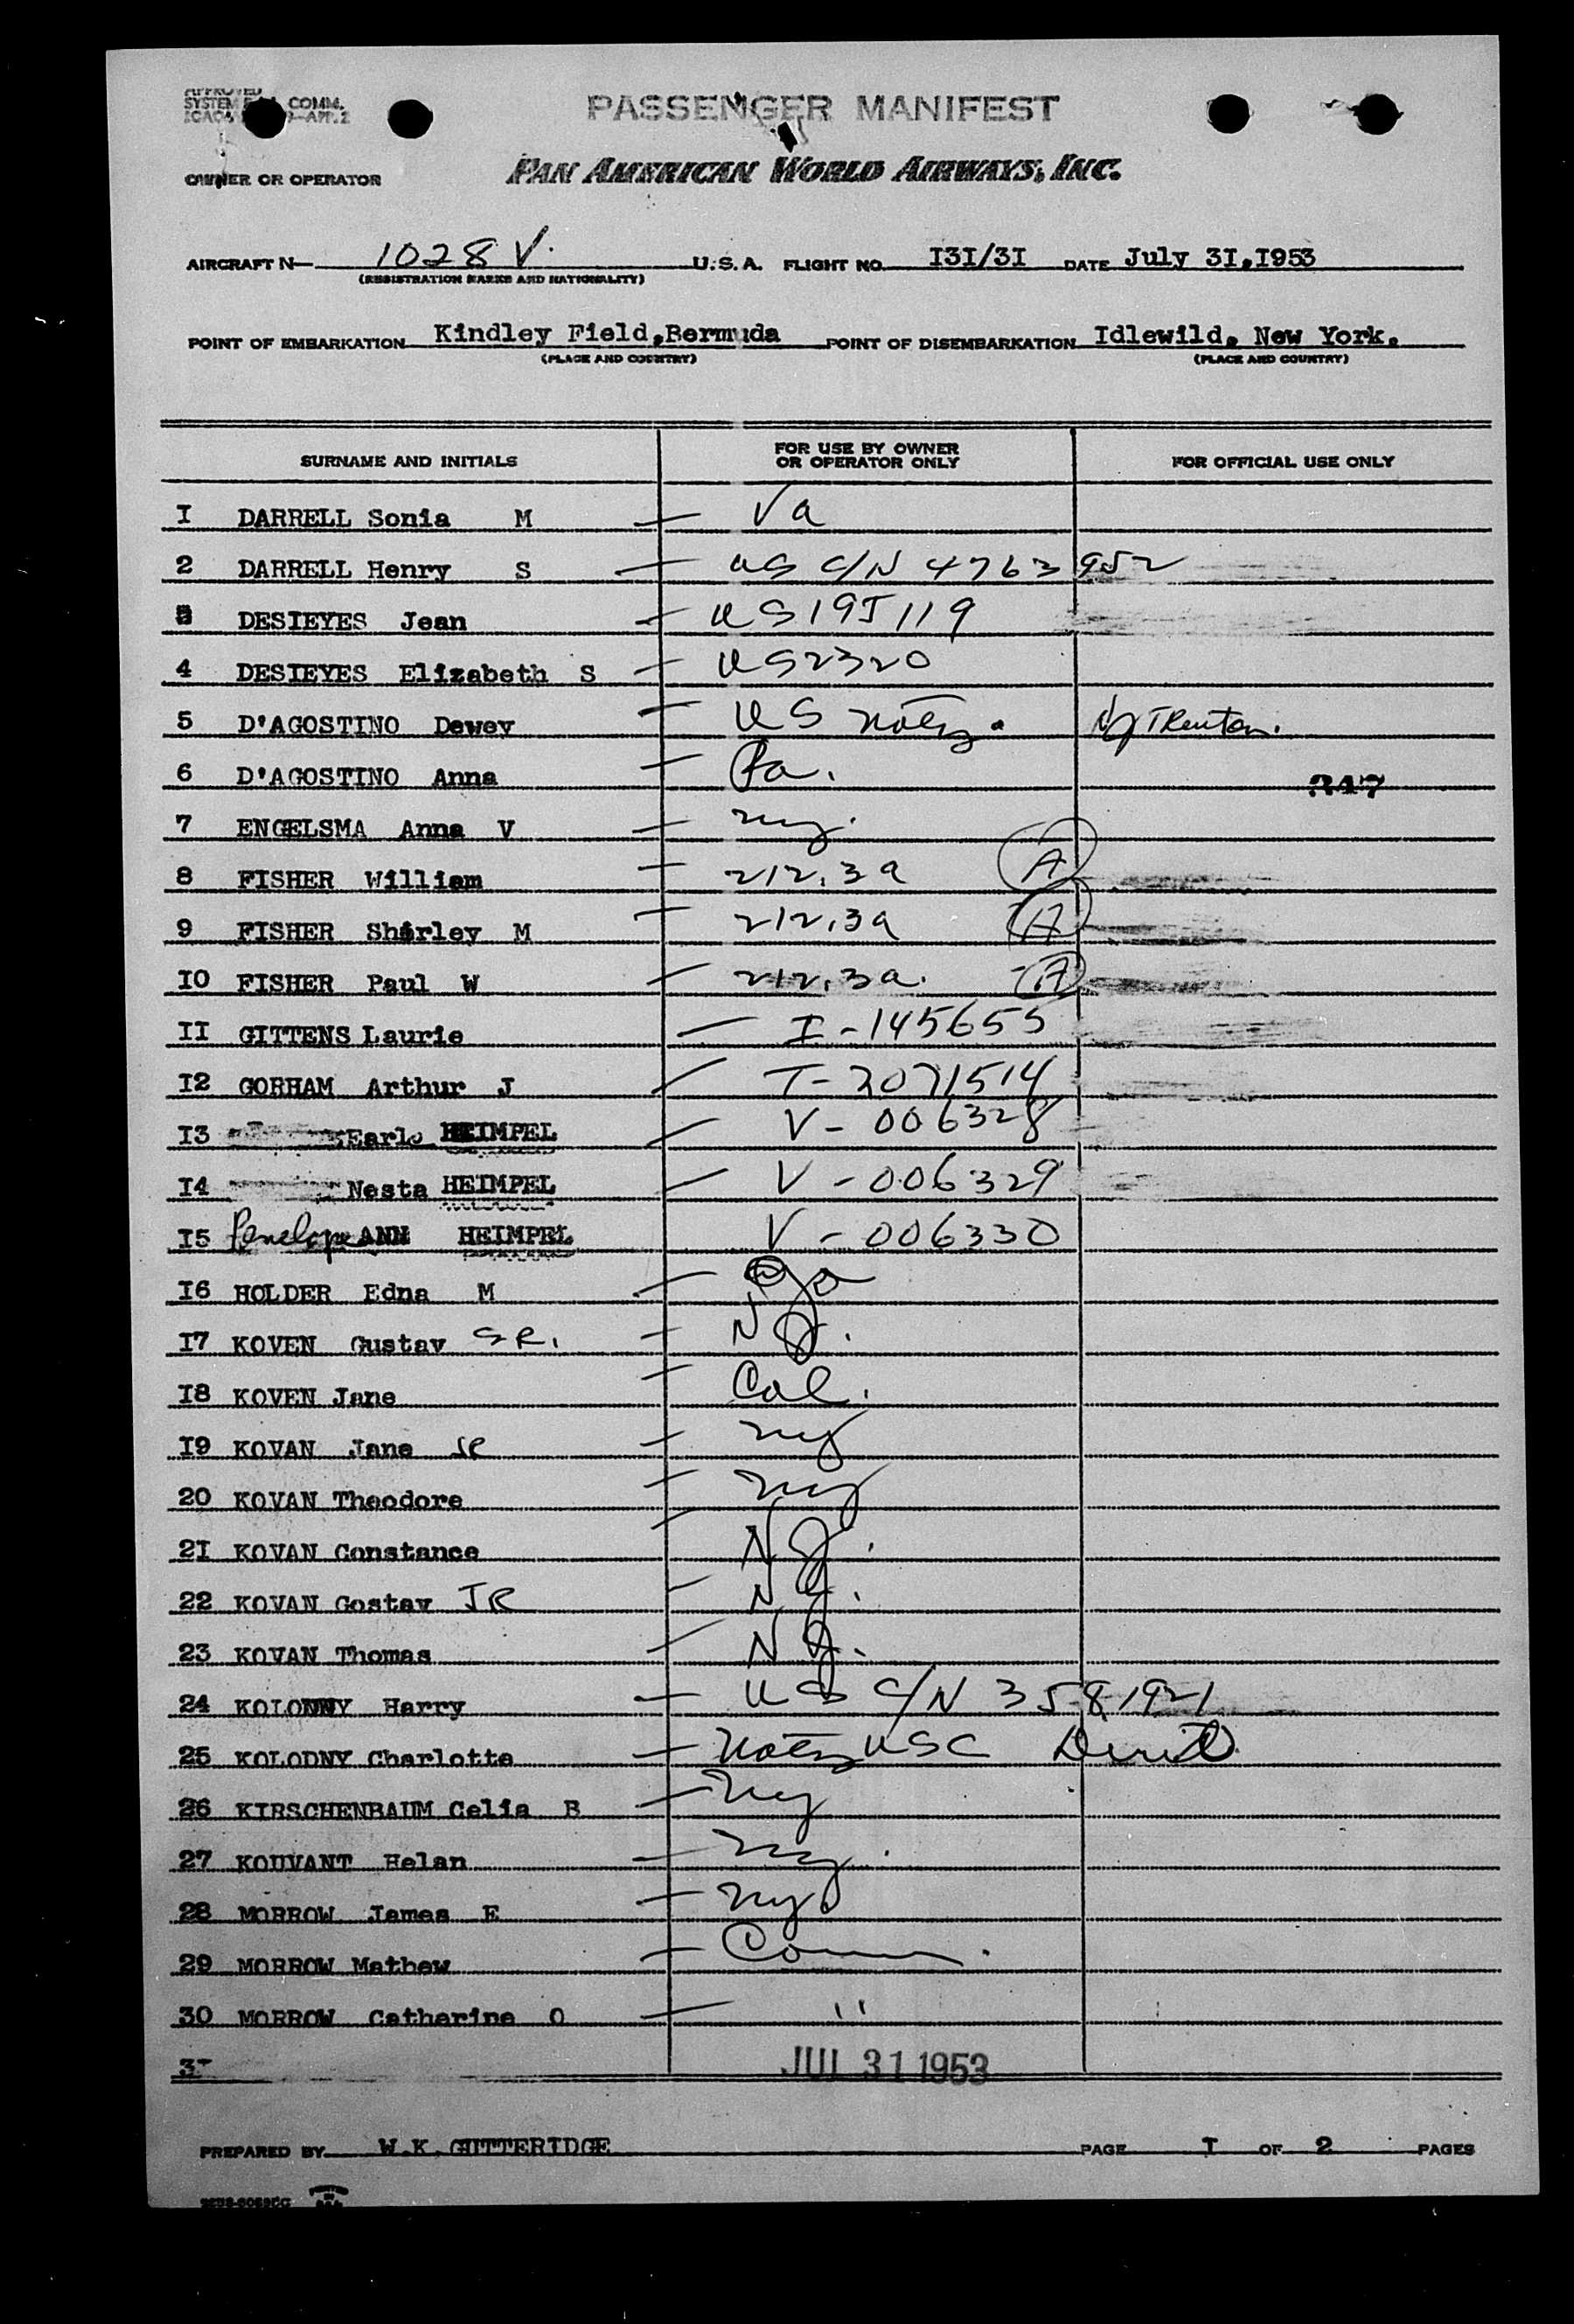 APPROVED
SYSTEM COMM.
PASSENGER MANIFEST
OWNER OR OPERATOR PAN AMERICAN WORLD AIRWAYS, INC.
AIRCRAFT N— 1028 V. U.S.A. FLIGHT NO. I3I/3I DATE July 3I,I953
(REGISTRATION MARKS AND NATIONALITY)
POINT OF EMBARKATION Kindley Field,Bermuda POINT OF DISEMBARKATION Idlewild, New York.
(PLACE AND COUNTRY) (PLACE AND COUNTRY)
SURNAME AND INITIALS FOR USE BY OWNER OR OPERATOR ONLY FOR OFFICIAL USE ONLY
I DARRELL Sonia M — Va
2 DARRELL Henry S — US C/N 4763952
3 DESIEYES Jean — US 195119
4 DESIEYES Elizabeth S — US2320
5 D'AGOSTINO Dewey — US Natz. NJ Trenton.
6 D'AGOSTINO Anna — Pa.
347
7 ENGELSMA Anna V — NY.
8 FISHER William — 212.3a A
9 FISHER Shirley M — 212.3a A
I0 FISHER Paul W — 212.3a. A
II GITTENS Laurie — I-145655
I2 GORHAM Arthur J — T-2071514
I3 Earl HEIMPEL — V-006328
I4 Nesta HEIMPEL — V-006329
I5 Penelope ANN HEIMPEL V-006330
I6 HOLDER Edna M —
I7 KOVEN Gustav SR. — NJ.
I8 KOVEN Jane — Cal.
I9 KOVAN Jane JR — NY
20 KOVAN Theodore — NY
2I KOVAN Constance — NJ.
22 KOVAN Gostav JR — NJ.
23 KOVAN Thomas — NJ.
24 KOLONNY Harry — US C/N 3581921
25 KOLODNY Charlotte — Natz USC
26 KIRSCHENBAUM Celia B — NY
27 KOUVANT Helan — NY.
28 MORROW James E — NY
29 MORROW Mathew — Conn.
30 MORROW Catherine O — "
JUL 31 1953
PREPARED BY W.K. GUTTERIDGE PAGE I OF 2 PAGES